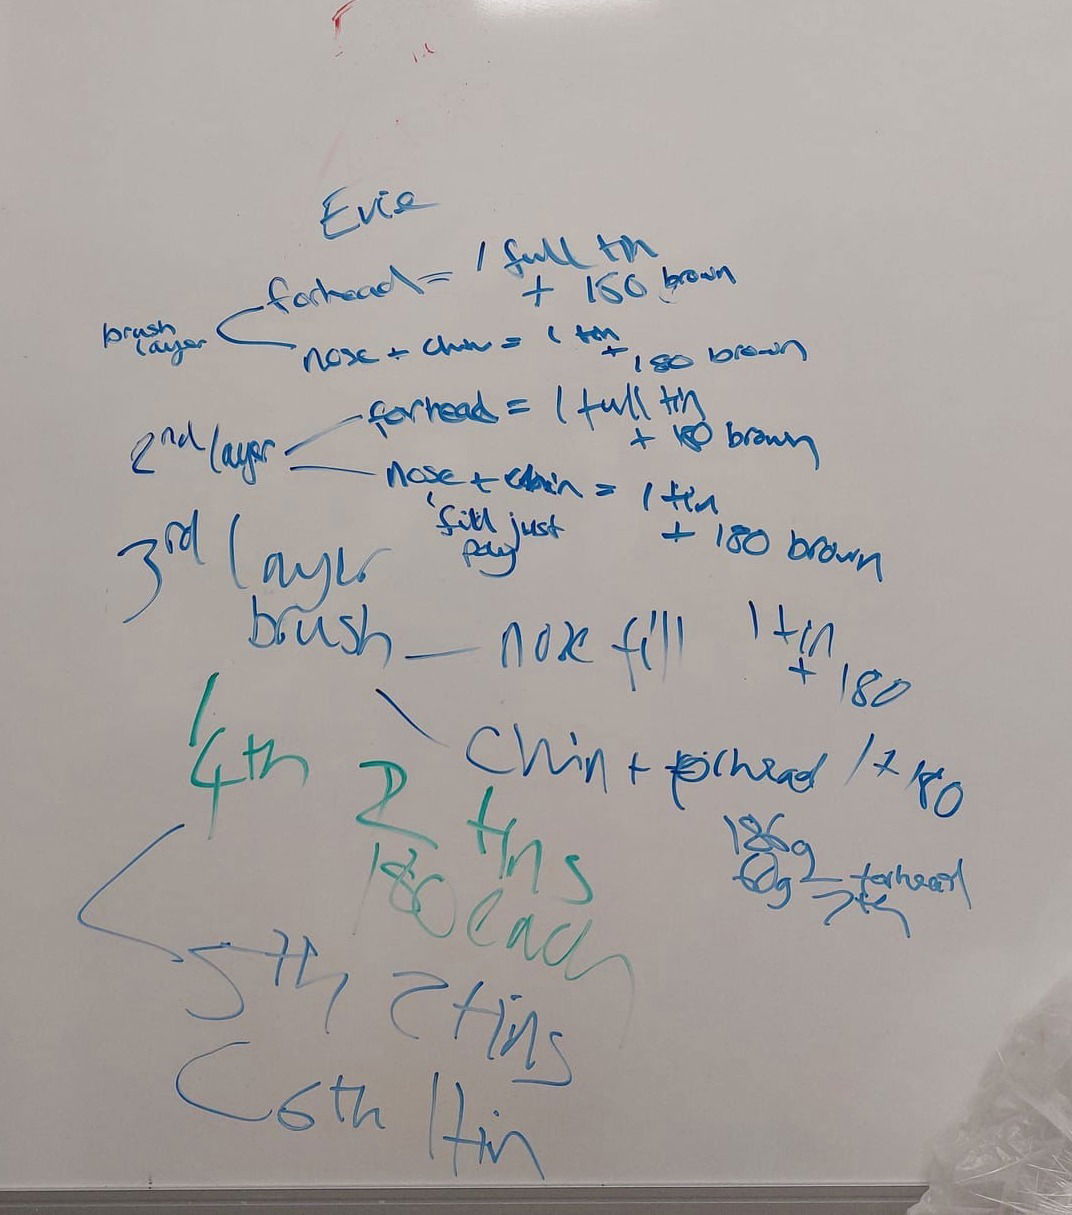 Evie
brush layer
forhead = 1 full tin + 150 brown
nose + chin = 1 tin + 180 brown
2nd layer
forhead = 1 full tin + 180 brown
nose + chin = 1 tin + 180 brown
fill just
3rd layer
brush — nose fill 1 tin + 180
chin + forhead 1 + 180
186g
60g forhead
7th
4th 2 tins
180 each
5th 2 tins
6th 1 tin